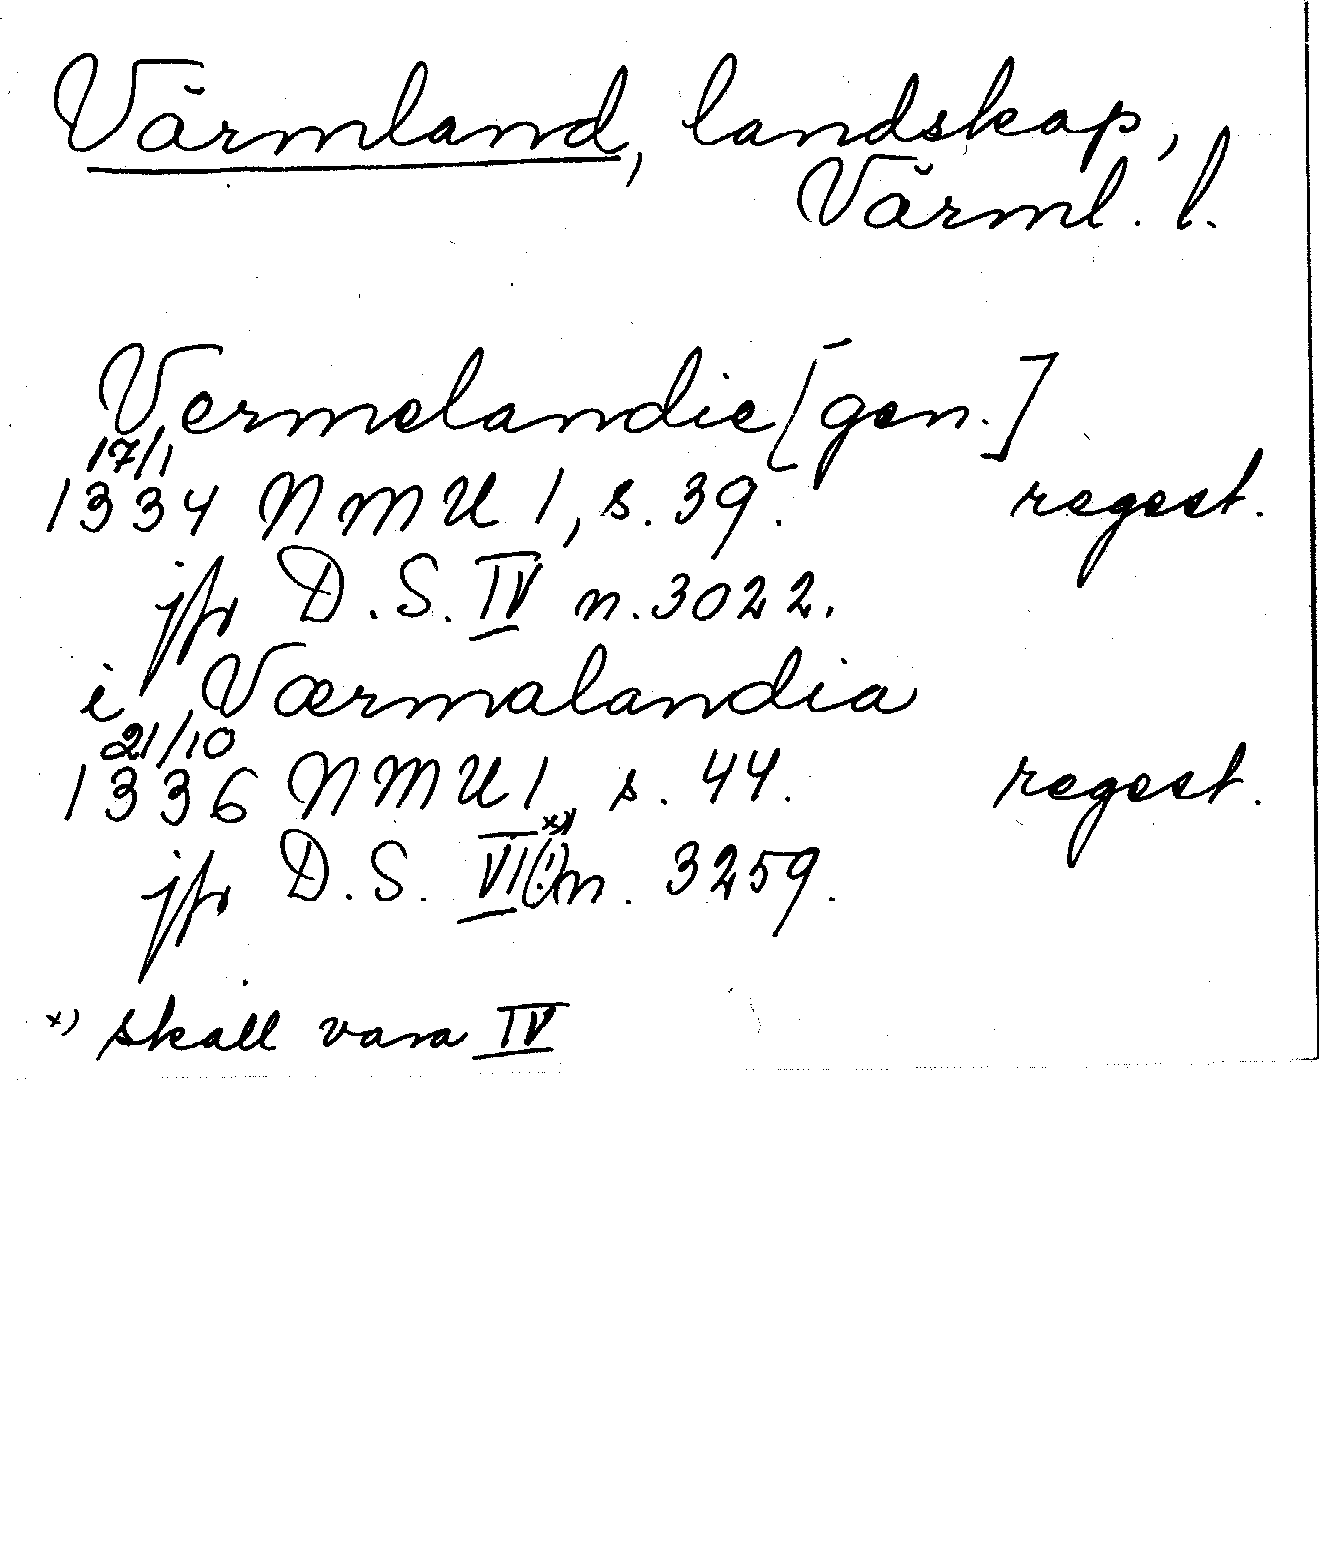 Värmland, landskap,
Värml. l.
Vermelandie [gen.]
17/1
1334 NMU 1, s. 39. regest.
jfr D.S. IV n. 3022.
iVærmalandia
21/10
1336 NMU 1, s. 44. regest.
jfr D.S. VI(!)*) n. 3259.
*) skall vara IV